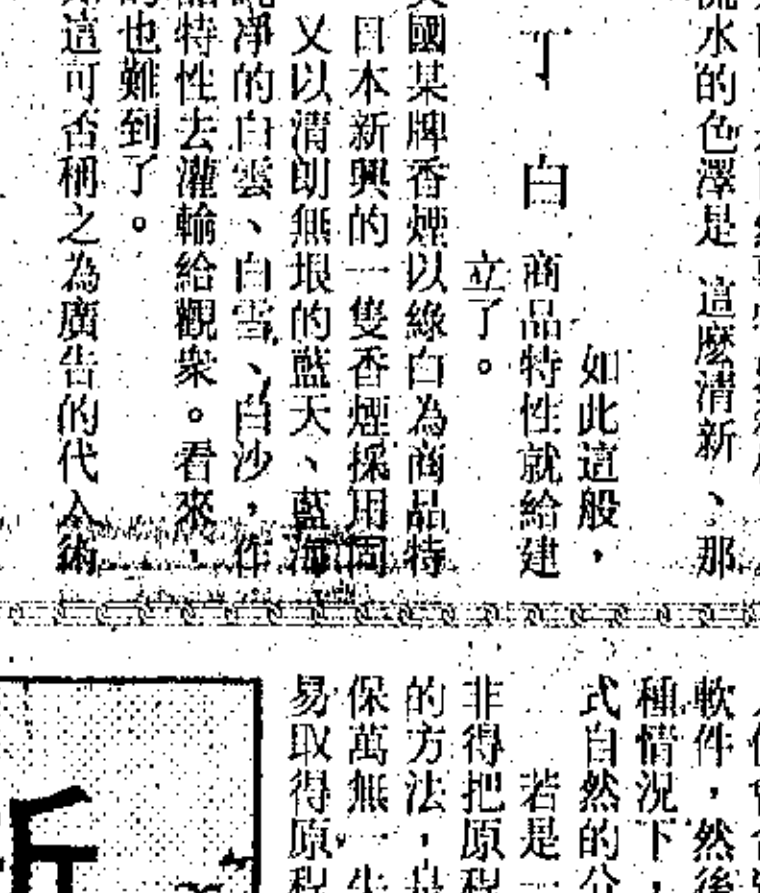 流水的色澤是 這麼清新、那
如此這般，
白 商品特性就給建
立了。
國某牌香煙以綠白為商品特
日本新興的一隻香煙採用同
又以清朗無垠的藍天、藍海
淨的白雲、白雪、白沙，作
特性去灌輸給觀衆。看來，
也難到了。
這可否稱之為廣告的代入術
軟件，然後
種情況下，
式自然的分
若是一
非得把原程
的方法，是
保萬無一失
易取得原程